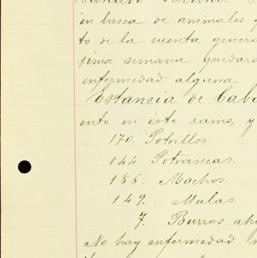 en busca de animales y
to de la cuenta genera
semana quedar
enfermedad alguna
Estancia de Cab
ento en este ramo, y
170. Potrillos.
144 Potrancas.
186. Machos.
149. Mulas.
7. Burros
No hay enfermedad